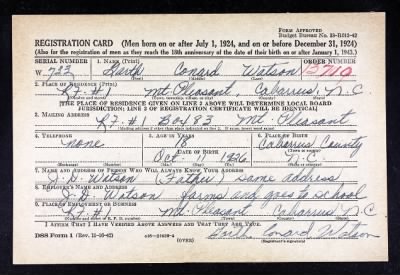 FORM APPROVED
Budget Bureau No. 33-R012-42
REGISTRATION CARD (Men born on or after July 1, 1924, and on or before December 31, 1924)
(Also for the registration of men as they reach the 18th anniversary of the date of their birth on or after January 1, 1943.)
SERIAL NUMBER 1. NAME (Print) ORDER NUMBER
W 723 Garth Conard Watson 13710
(First) (Middle) (Last)
2. PLACE OF RESIDENCE (Print)
R.F. #1 Mt. Pleasant, Cabarrus, N.C
[THE PLACE OF RESIDENCE GIVEN ON LINE 2 ABOVE WILL DETERMINE LOCAL BOARD
JURISDICTION; LINE 2 OF REGISTRATION CERTIFICATE WILL BE IDENTICAL]
3. MAILING ADDRESS
R.F. #1 Box 83 Mt. Pleasant
4. TELEPHONE 5. AGE IN YEARS 6. PLACE OF BIRTH
none 18 Cabarrus County
DATE OF BIRTH
Oct. 1926 N.C.
7. NAME AND ADDRESS OF PERSON WHO WILL ALWAYS KNOW YOUR ADDRESS
Watson (Father) same address
8. EMPLOYER'S NAME AND ADDRESS
Watson farms and goes to school
9. PLACE OF EMPLOYMENT OR BUSINESS
R.F. #1 Mt. Pleasant Cabarrus N.C
I AFFIRM THAT I HAVE VERIFIED ABOVE ANSWERS AND THAT THEY ARE TRUE.
DSS Form 1 (Rev. 11-16-42) (OVER) Garth Conard Watson
(Registrant's signature)